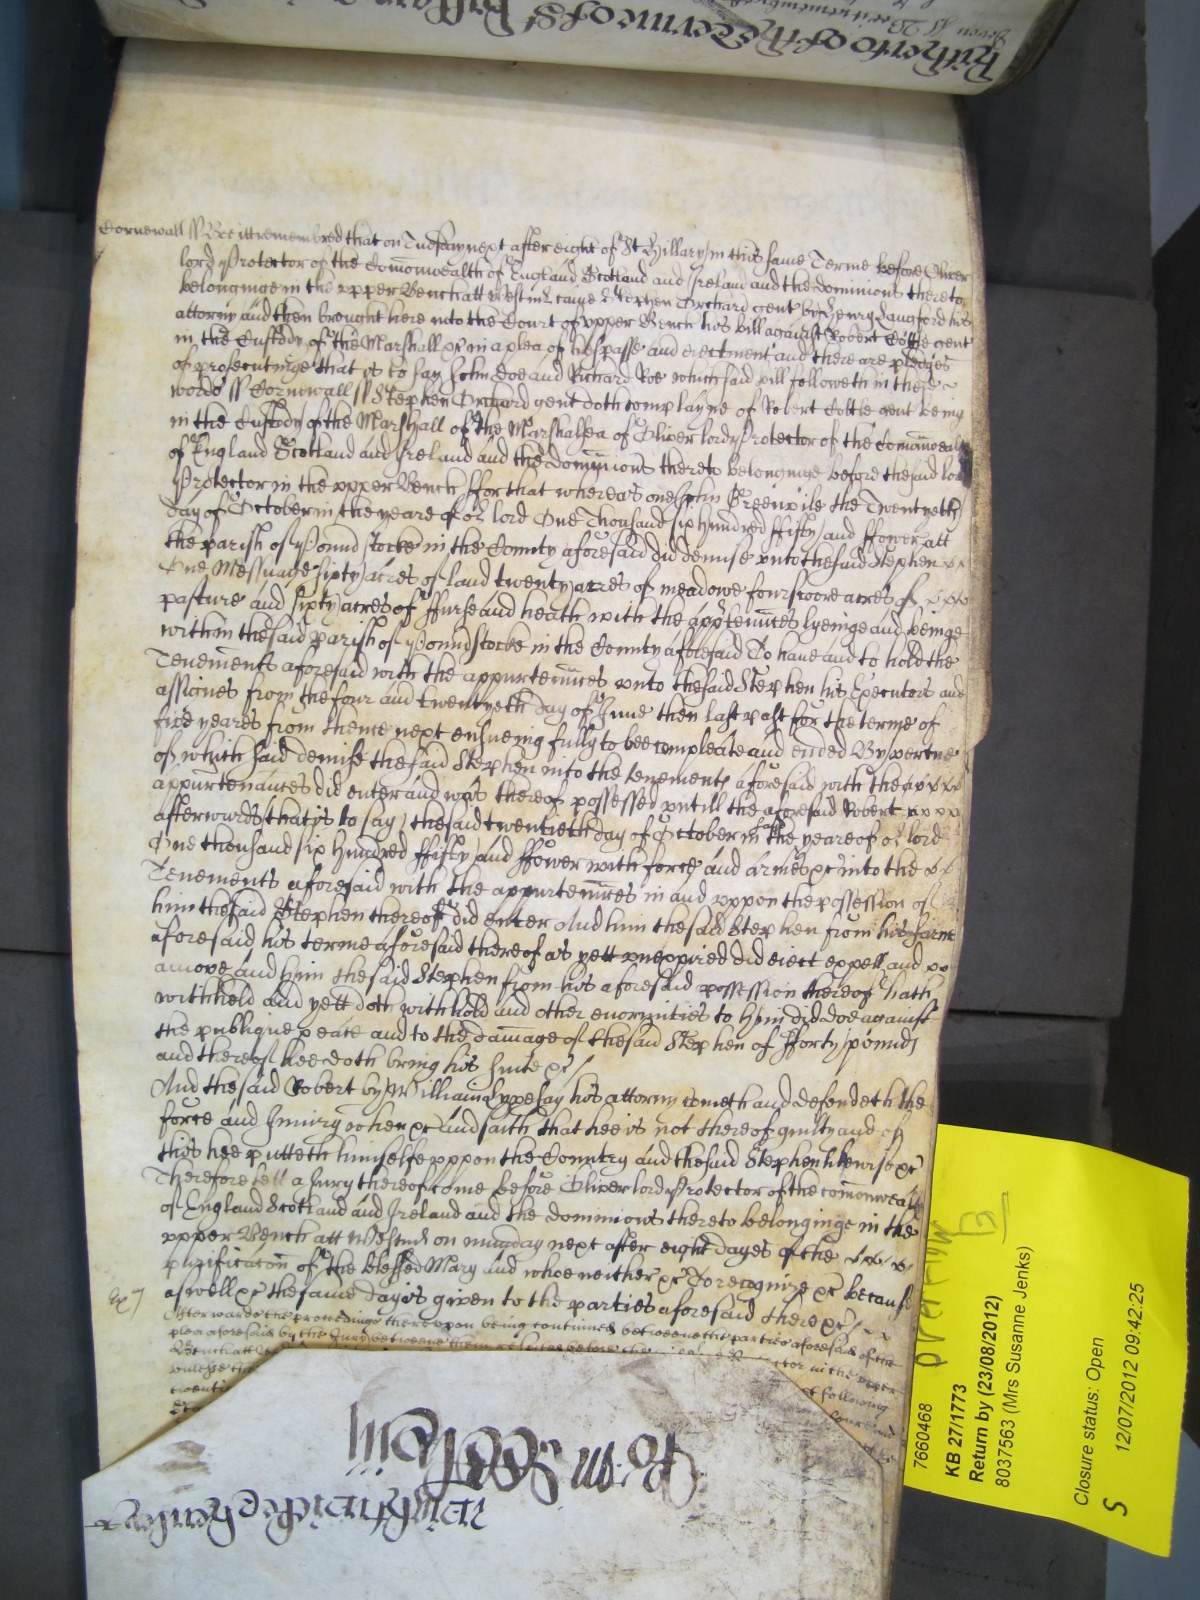 Hitherto of the Terme of St Hillary
Cornewall ss Bee itt remembred that on Tuesday next after eight of St Hillary in this same Terme before Oliver
lord Protector of the Comonwealth of England Scotland and Ireland and the dominions thereto
belonginge in the upper Bench att Westmr came Stephen Orchard gent by Henry Langford his
attorny and then brought here into the Court of upper Bench his bill against Robert Cottle gent
in the Custody of the Marshall &c in a plea of trespasse and eiectment and there are pledges
of prosecutinge that is to say John Doe and Richard Roe which said bill followeth in these
words ss Cornewall ss Stephen Orchard gent doth complayne of Robert Cottle gent being
in the Custody of the Marshall of the Marshalsea of Oliver lord Protector of the Comonweal
of England Scotland and Ireland and the dominions thereto belonginge before the said lord
Protector in the upper Bench ffor that whereas one John Greenvile the Twentyeth
day of October in the yeare of or lord One Thousand six hundred ffifty and ffower att
the parish of Poundstocke in the County aforesaid did demise unto the said Stephen
One Messuage sixty acres of land twenty acres of meadowe fourscore acres of
pasture and sixty acres of ffurse and heath with the apprtennces lyeinge and beinge
within the said parish of Poundstocke in the County aforesaid To have and to hold the
Tenements aforesaid with the appurtennces unto the said Stephen his Executors and
assignes from the four and twentyeth day of June then last past for the terme of
five yeares from thence next ensueing fully to bee compleate and ended By vertue
of which said demise the said Stephen into the tenements aforesaid with the
appurtenances did enter and was thereof possessed untill the aforesaid Robert
afterwards that is to say the said twentieth day of October in the yeare of or lord
One thousand six hundred ffifty and ffower with force and armes &c into the
Tenements aforesaid with the appurtennces in and uppon the possession of
him the said Stephen thereof did enter And him the said Stephen from his farme
aforesaid his terme aforesaid thereof as yett unexpired did eiect expell and
amove and him the said Stephen from his aforesaid possession thereof hath
withheld and yett doth withhold and other enormities to him did doe against
the publique peace and to the damage of the said Stephen of fforty pounds
and thereof hee doth bring his suite &c
And the said Robert by William his attorny cometh and defendeth the
force and Iniury when &c And saith that hee is not thereof guilty and of
this hee putteth himselfe uppon the Country and the said Stephen likewise &c
Therefore lett a Jury thereof come before Oliver lord Protector of the comonwealt
of England Scotland and Ireland and the dominions thereto belonginge in the
upper Bench att Westmr on munday next after eight dayes of the
purification of the blessed Mary and whoe neither &c To recognize &c because
aswell &c the same day is given to the parties aforesaid there &c
Afterwards the proceedings thereupon being continued betweene the parties aforesaid of the
plea aforesaid by the Jury betweene them respited before the in the upper
Bench att
unlesse
following
Ro: m
OVERFLOW
7660468
KB 27/1773
Return by (23/08/2012)
8037563 (Mrs Susanne Jenks)
Closure status: Open
12/07/2012 09:42:25
S